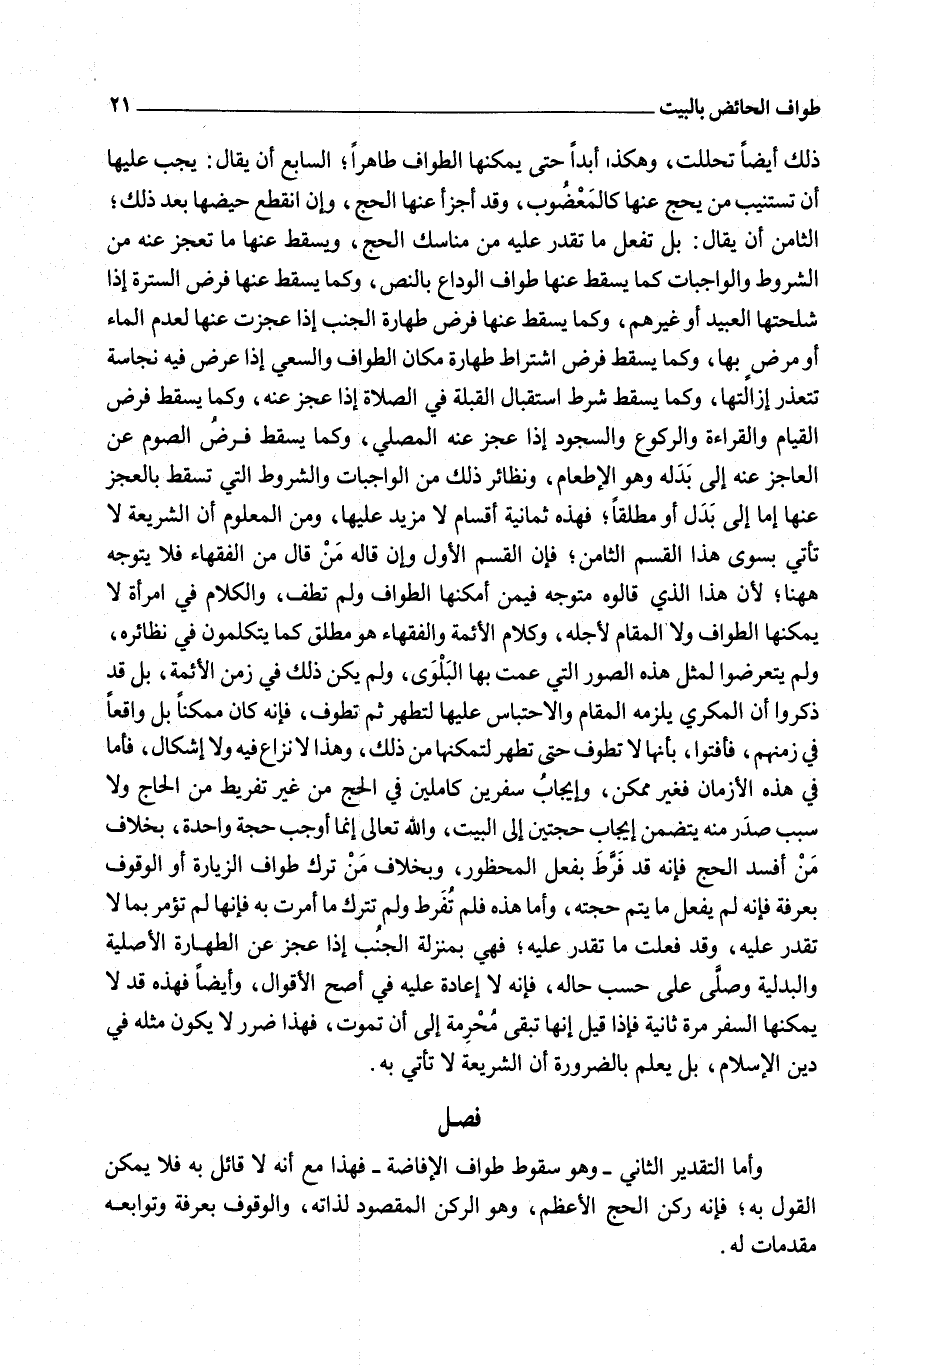 طواف الحائض بالبيت ــــــــــــــــــــــــــــــــــــــــ ٢١
ذلك أيضاً تحللت، وهكذا أبداً حتى يمكنها الطواف طاهراً؛ السابع أن يقال: يجب عليها
أن تستنيب من يحج عنها كالمَعْضُوب، وقد أجزأ عنها الحج، وإن انقطع حيضها بعد ذلك؛
الثامن أن يقال: بل تفعل ما تقدر عليه من مناسك الحج، ويسقط عنها ما تعجز عنه من
الشروط والواجبات كما يسقط عنها طواف الوداع بالنص، وكما يسقط عنها فرض السترة إذا
شلحتها العبيد أو غيرهم، وكما يسقط عنها فرض طهارة الجنب إذا عجزت عنها لعدم الماء
أو مرضٍ بها، وكما يسقط فرض اشتراط طهارة مكان الطواف والسعي إذا عرض فيه نجاسة
تتعذر إزالتها، وكما يسقط شرط استقبال القبلة في الصلاة إذا عجز عنه، وكما يسقط فرض
القيام والقراءة والركوع والسجود إذا عجز عنه المصلي، وكما يسقط فرضُ الصوم عن
العاجز عنه إلى بَدَله وهو الإطعام، ونظائر ذلك من الواجبات والشروط التي تسقط بالعجز
عنها إما إلى بَدَل أو مطلقاً؛ فهذه ثمانية أقسام لا مزيد عليها، ومن المعلوم أن الشريعة لا
تأتي بسوى هذا القسم الثامن؛ فإن القسم الأول وإن قاله مَنْ قال من الفقهاء فلا يتوجه
ههنا؛ لأن هذا الذي قالوه متوجه فيمن أمكنها الطواف ولم تطف، والكلام في امرأة لا
يمكنها الطواف ولا المقام لأجله، وكلام الأئمة والفقهاء هو مطلق كما يتكلمون في نظائره،
ولم يتعرضوا لمثل هذه الصور التي عمت بها البَلْوَى، ولم يكن ذلك في زمن الأئمة، بل قد
ذكروا أن المكري يلزمه المقام والاحتباس عليها لتطهر ثم تطوف، فإنه كان ممكناً بل واقعاً
في زمنهم، فأفتوا، بأنها لا تطوف حتى تطهر لتمكنها من ذلك، وهذا لا نزاع فيه ولا إشكال، فأما
في هذه الأزمان فغير ممكن، وإيجابُ سفرين كاملين في الحج من غير تفريط من الحاج ولا
سبب صدَر منه يتضمن إيجاب حجتين إلى البيت، والله تعالى إنما أوجب حجة واحدة، بخلاف
مَنْ أفسد الحج فإنه قد فَرَّطَ بفعل المحظور، وبخلاف مَنْ ترك طواف الزيارة أو الوقوف
بعرفة فإنه لم يفعل ما يتم حجته، وأما هذه فلم تُفَرط ولم تترك ما أمرت به فإنها لم تؤمر بما لا
تقدر عليه، وقد فعلت ما تقدر عليه؛ فهي بمنزلة الجنُب إذا عجز عن الطهارة الأصلية
والبدلية وصلَّى على حسب حاله، فإنه لا إعادة عليه في أصح الأقوال، وأيضاً فهذه قد لا
يمكنها السفر مرة ثانية فإذا قيل إنها تبقى مُحْرِمة إلى أن تموت، فهذا ضرر لا يكون مثله في
دين الإسلام، بل يعلم بالضرورة أن الشريعة لا تأتي به.
فصل
وأما التقدير الثاني ـ وهو سقوط طواف الإفاضة ـ فهذا مع أنه لا قائل به فلا يمكن
القول به؛ فإنه ركن الحج الأعظم، وهو الركن المقصود لذاته، والوقوف بعرفة وتوابعه
مقدمات له.